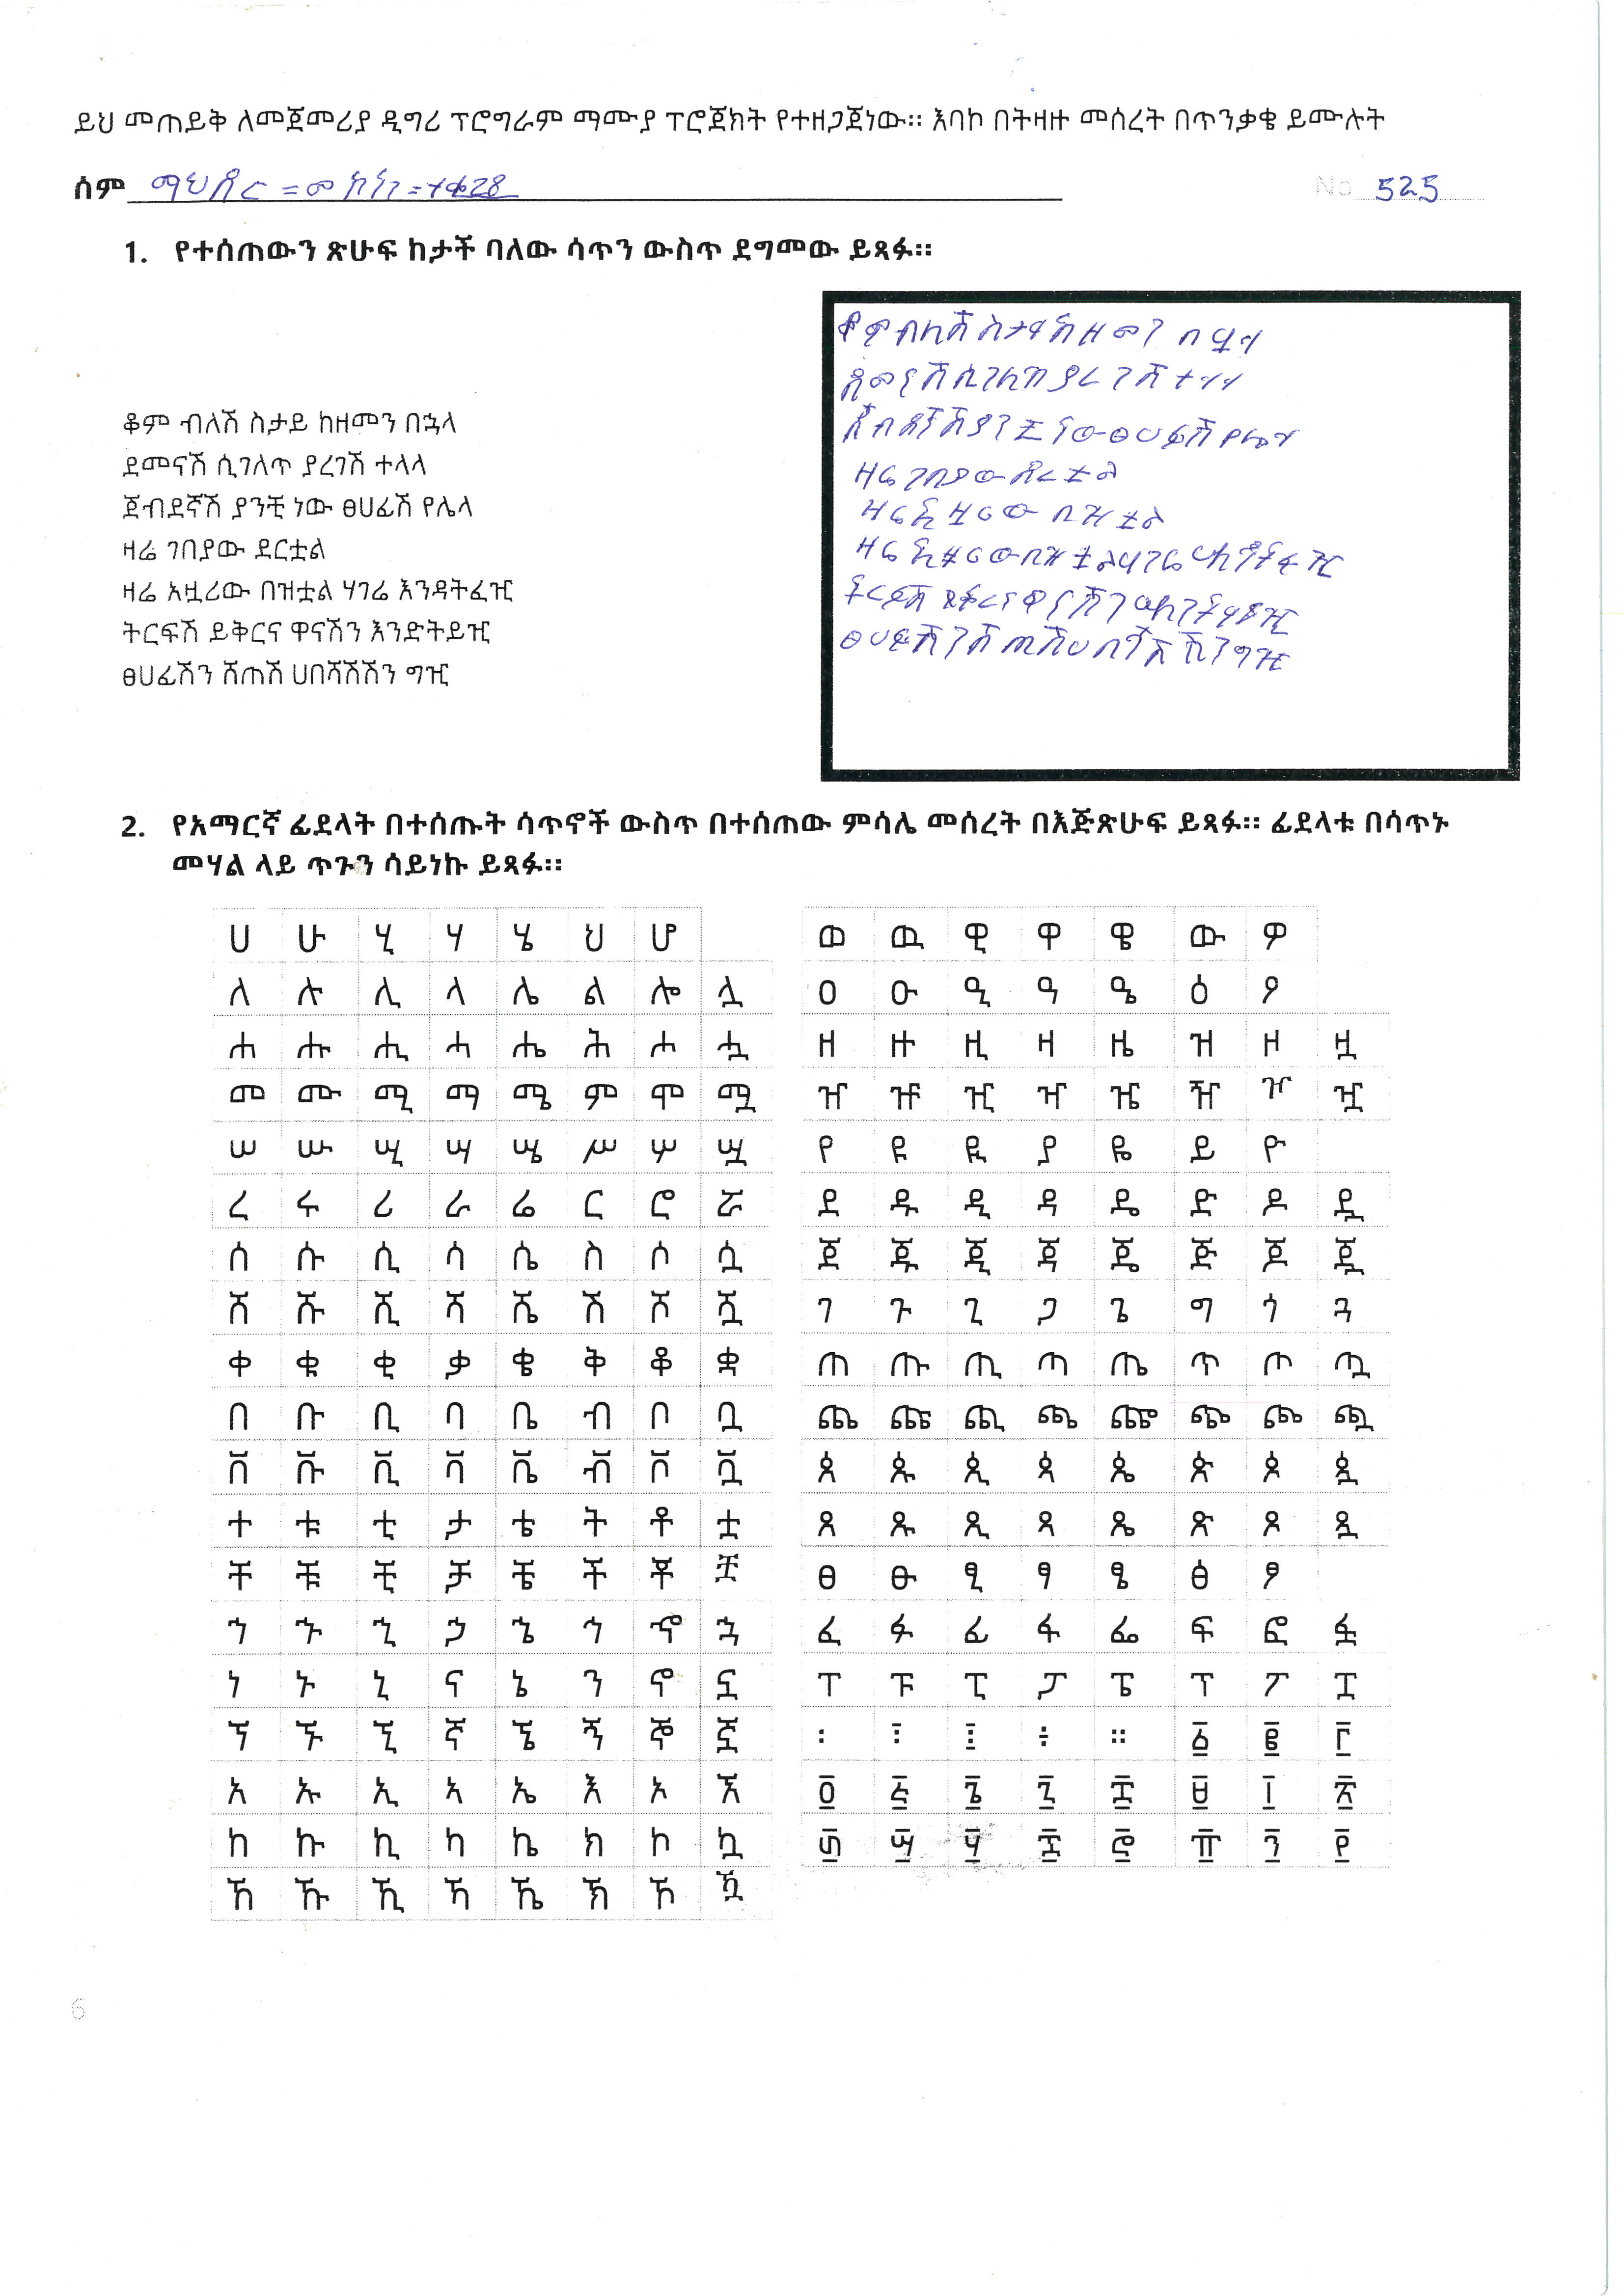 ይህ መጠይቅ ለመጀመሪያ ዲግሪ ፕሮግራም ማሙያ ፕሮጀክት የተዘጋጀነው። እባኮ በትዛዙ መሰረት በጥንቃቄ ይሙሉት
ስም ማህደር = መኰንን =
No 525
1. የተሰጠውን ጽሁፍ ከታች ባለው ሳጥን ውስጥ ደግመው ይጻፉ።
ቆም ብለሽ ስታይ ከዘመን በኋላ
ደመናሽ ሲገለጥ ያረገሽ ተላላ
ጀብደኛሽ ያንቺ ነው ፀሀፊሽ የሌላ
ዛሬ ገበያው ደርቷል
ዛሬ አዟሪው በዝቷል ሃገሬ እንዳትፈዢ
ትርፍሽ ይቅርና ዋናሽን እንድትይዢ
ፀሀፊሽን ሸጠሽ ሀበሻሽሽን ግዢ
ቆም ብለሽ ስታይ ከዘመን በኋላ
ደመናሽ ሲገለጥ ያረገሽ ተላላ
ጀብደኛሽ ያንቺ ነው ፀሀፊሽ የሌላ
ዛሬ ገበያው ደርቷል
ዛሬ አዟሪው በዝቷል
ዛሬ አዟሪው በዝቷል ሃገሬ እንዳትፈዢ
ትርፍሽ ይቅርና ዋናሽን እንድትይዢ
ፀሀፊሽን ሸጠሽ ሀበሻሽሽን ግዢ
2. የአማርኛ ፊደላት በተሰጡት ሳጥኖች ውስጥ በተሰጠው ምሳሌ መሰረት በእጅጽሁፍ ይጻፉ። ፊደላቱ በሳጥኑ
መሃል ላይ ጥጉን ሳይነኩ ይጻፉ።
ሀ ሁ ሂ ሃ ሄ ህ ሆ
ለ ሉ ሊ ላ ሌ ል ሎ ሏ
ሐ ሑ ሒ ሓ ሔ ሕ ሖ ሗ
መ ሙ ሚ ማ ሜ ም ሞ ሟ
ሠ ሡ ሢ ሣ ሤ ሥ ሦ ሧ
ረ ሩ ሪ ራ ሬ ር ሮ ሯ
ሰ ሱ ሲ ሳ ሴ ስ ሶ ሷ
ሸ ሹ ሺ ሻ ሼ ሽ ሾ ሿ
ቀ ቁ ቂ ቃ ቄ ቅ ቆ ቋ
በ ቡ ቢ ባ ቤ ብ ቦ ቧ
ቨ ቩ ቪ ቫ ቬ ቭ ቮ ቯ
ተ ቱ ቲ ታ ቴ ት ቶ ቷ
ቸ ቹ ቺ ቻ ቼ ች ቾ ቿ
ኀ ኁ ኂ ኃ ኄ ኅ ኆ ኋ
ነ ኑ ኒ ና ኔ ን ኖ ኗ
ኘ ኙ ኚ ኛ ኜ ኝ ኞ ኟ
አ ኡ ኢ ኣ ኤ እ ኦ ኧ
ከ ኩ ኪ ካ ኬ ክ ኮ ኳ
ኸ ኹ ኺ ኻ ኼ ኽ ኾ ዃ
ወ ዉ ዊ ዋ ዌ ው ዎ
ዐ ዑ ዒ ዓ ዔ ዕ ዖ
ዘ ዙ ዚ ዛ ዜ ዝ ዞ ዟ
ዠ ዡ ዢ ዣ ዤ ዥ ዦ ዧ
የ ዩ ዪ ያ ዬ ይ ዮ
ደ ዱ ዲ ዳ ዴ ድ ዶ ዷ
ጀ ጁ ጂ ጃ ጄ ጅ ጆ ጇ
ገ ጉ ጊ ጋ ጌ ግ ጎ ጓ
ጠ ጡ ጢ ጣ ጤ ጥ ጦ ጧ
ጨ ጩ ጪ ጫ ጬ ጭ ጮ ጯ
ጰ ጱ ጲ ጳ ጴ ጵ ጶ ጷ
ጸ ጹ ጺ ጻ ጼ ጽ ጾ ጿ
ፀ ፁ ፂ ፃ ፄ ፅ ፆ
ፈ ፉ ፊ ፋ ፌ ፍ ፎ ፏ
ፐ ፑ ፒ ፓ ፔ ፕ ፖ ፗ
፡ ፤ ፥ ፣ ። ፩ ፪ ፫
፬ ፭ ፮ ፯ ፰ ፱ ፲ ፳
፴ ፵ ፶ ፷ ፸ ፹ ፺ ፻
6